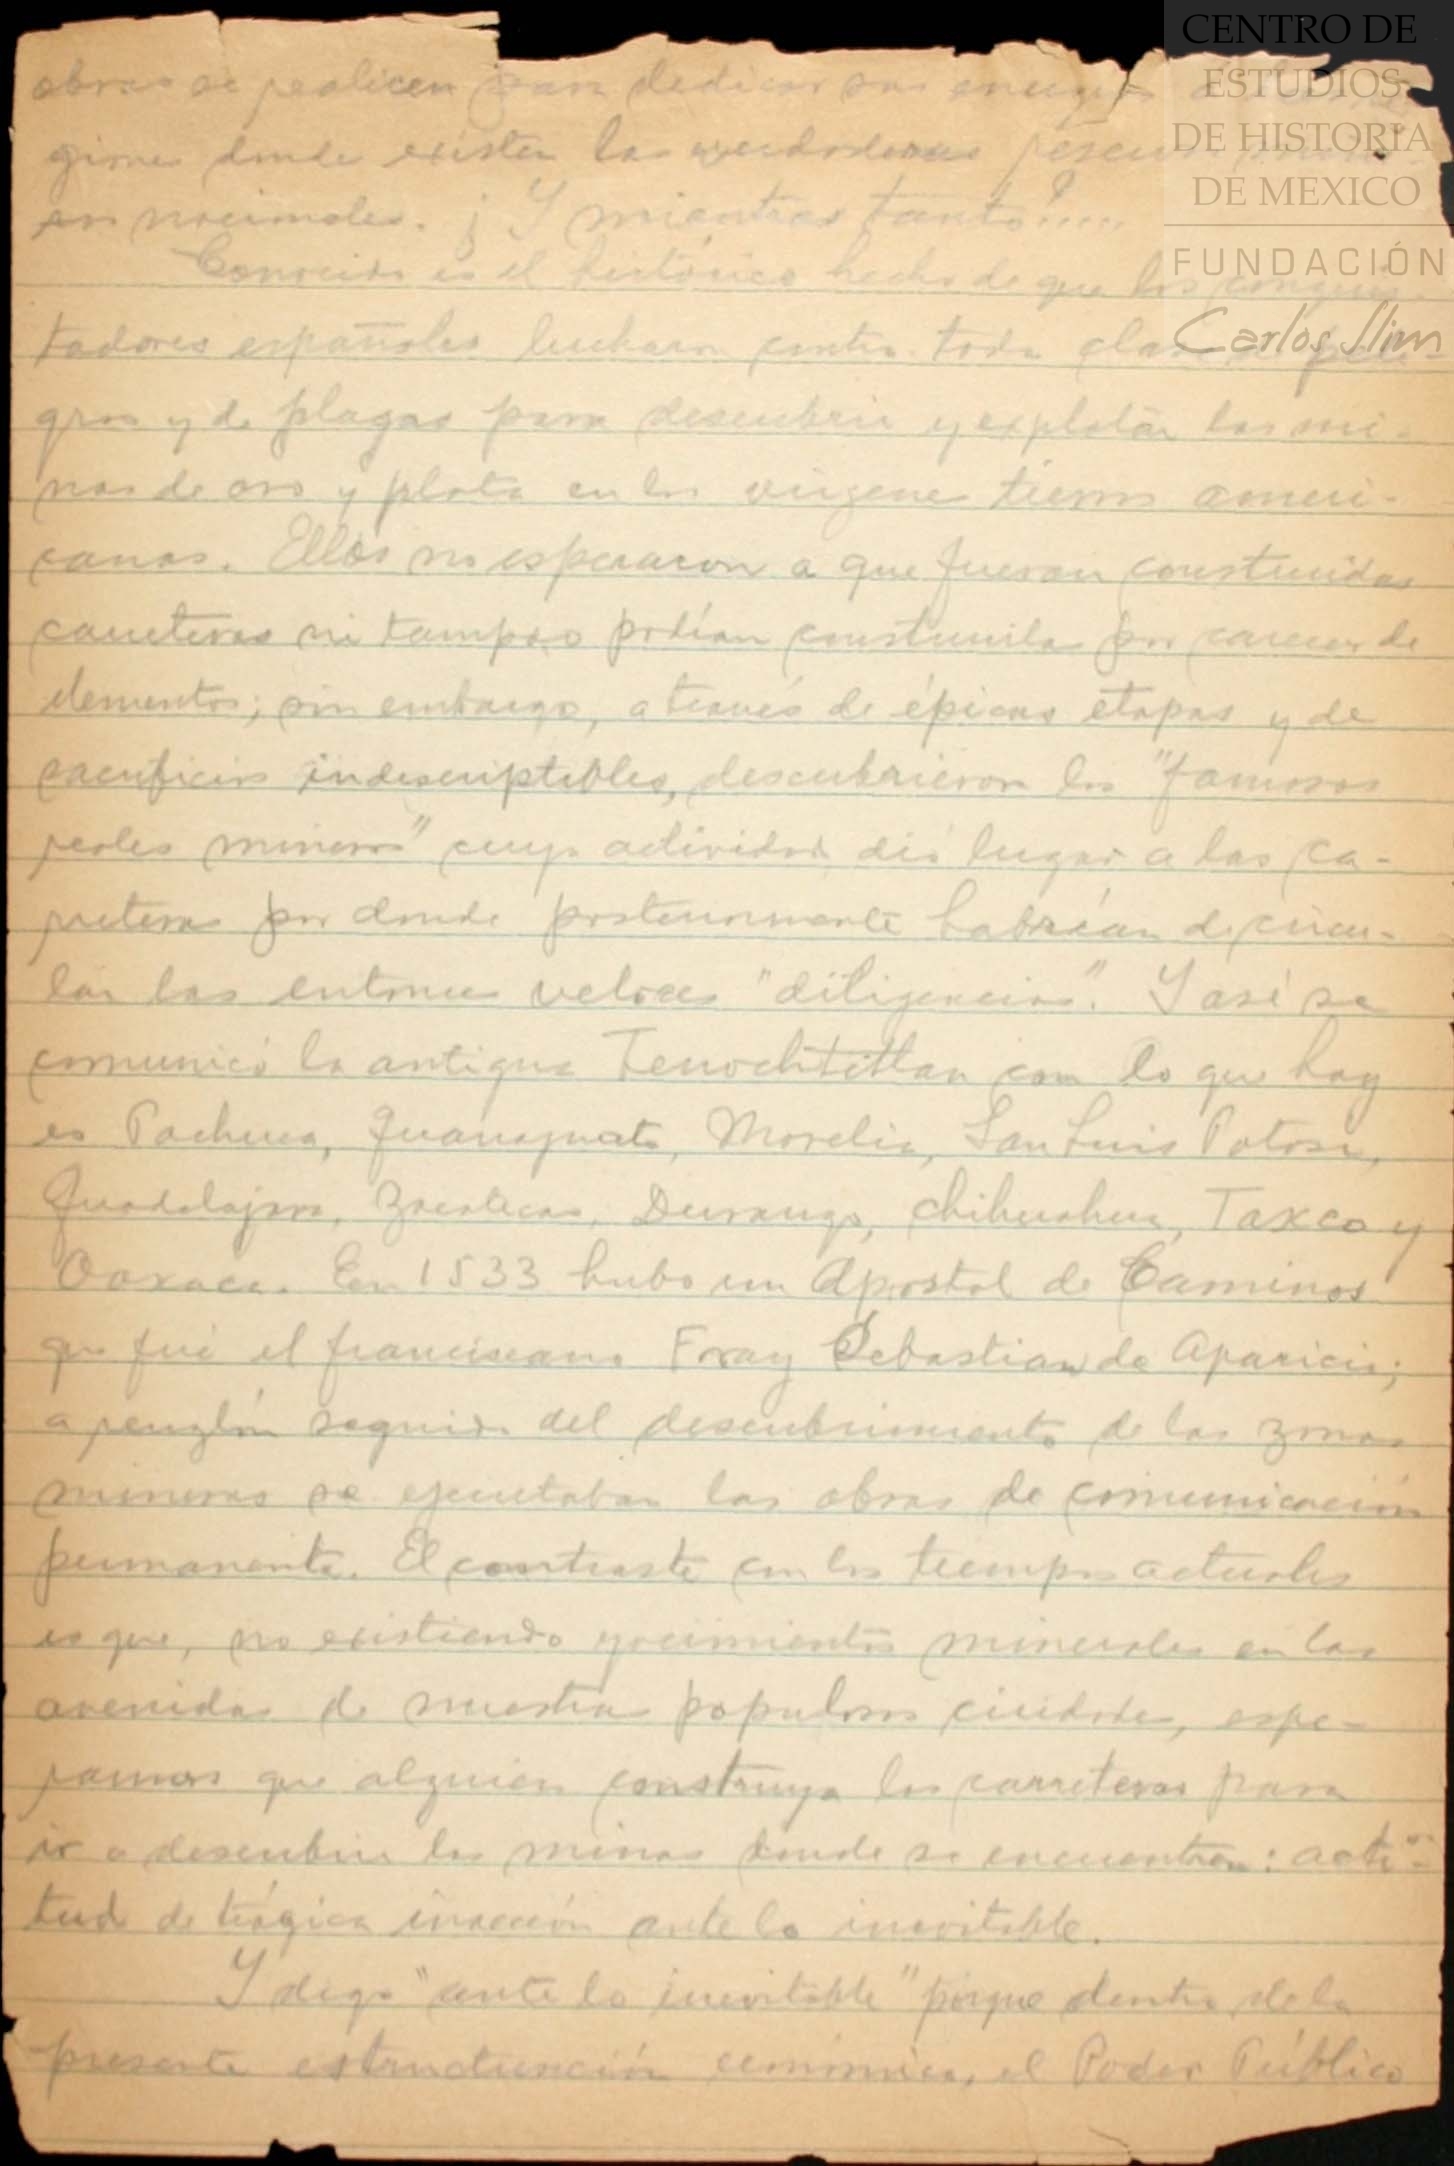 CENTRO DE
ESTUDIOS
DE HISTORIA
DE MEXICO
FUNDACIÓN
Carlos Slim
obras se realicen para dedicar sus energías a las re-
giones donde existen las verdaderas reservas
nacionales. ¡Y mientras tanto!....
Conocido es el histórico hecho de que los conquis-
tadores españoles lucharon contra toda clase de peli-
gros y de plagas para descubrir y explotar las mi-
nas de oro y plata en las vírgenes tierras ameri-
canas. Ellos no esperaron a que fueran construidas
carreteras ni tampoco podían construirlas por carecer de
elementos; sin embargo, a través de épicas etapas y de
sacrificios indescriptibles, descubrieron los "famosos
reales mineros" cuya actividad dió lugar a las ca-
rreteras por donde posteriormente habrían de circu-
lar las entonces veloces "diligencias". Y así se
comunicó la antigua Tenochtitlan con lo que hoy
es Pachuca, Guanajuato, Morelia, San Luis Potosí,
Guadalajara, Zacatecas, Durango, Chihuahua, Taxco y
Oaxaca. En 1533 hubo un Apostol de Caminos
que fué el franciscano Fray Sebastian de Aparicio;
a renglón seguido del descubrimiento de las zonas
mineras se ejecutaban las obras de comunicación
permanente. El contraste con los tiempos actuales
es que, no existiendo yacimientos minerales en las
avenidas de nuestras populosas ciudades, espe-
ramos que alguien construya las carreteras para
ir a descubrir las minas donde se encuentran: acti-
tud de trágica inacción ante lo inevitable.
Y digo "ante lo inevitable" porque dentro de la
presente estructuración económica, el Poder Público